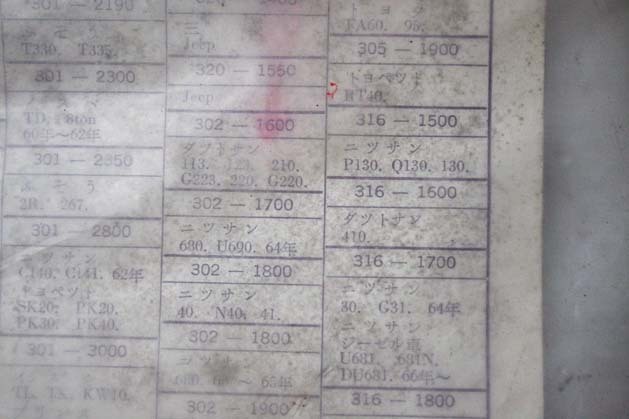 301 — 2190
ふそう
T330. T335.
301 — 2300
TD. 8ton
60年～62年
301 — 2350
ふそう
2R. 267.
301 — 2800
ニツサン
C140. C141. 62年
トヨペツト
SK20. PK20.
PK30. PK40.
301 — 3000
TL. TK. KW10.
三菱
Jeep
320 — 1550
Jeep
302 — 1600
ダツトサン
113. 123. 210.
G223. 220. G220.
302 — 1700
ニツサン
680. U690. 64年
302 — 1800
ニツサン
40. N40. 41.
302 — 1800
ニツサン
302 — 1900
トヨタ
FA60. 95.
305 — 1900
トヨペツト
RT40.
316 — 1500
ニツサン
P130. Q130. 130.
316 — 1600
ダツトサン
410.
316 — 1700
ニツサン
30. G31. 64年
ニツサン
ジーゼル車
U681. 681N.
DU681. 66年～
316 — 1800